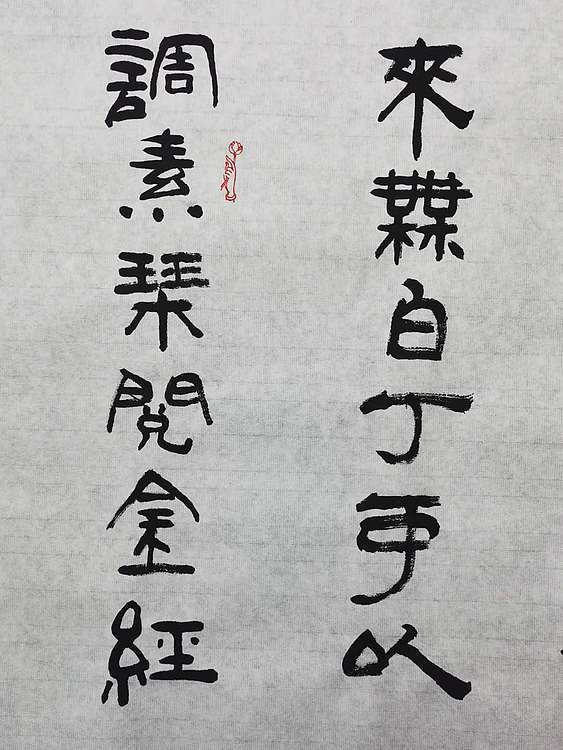 來無白丁可以
調素琴閱金經